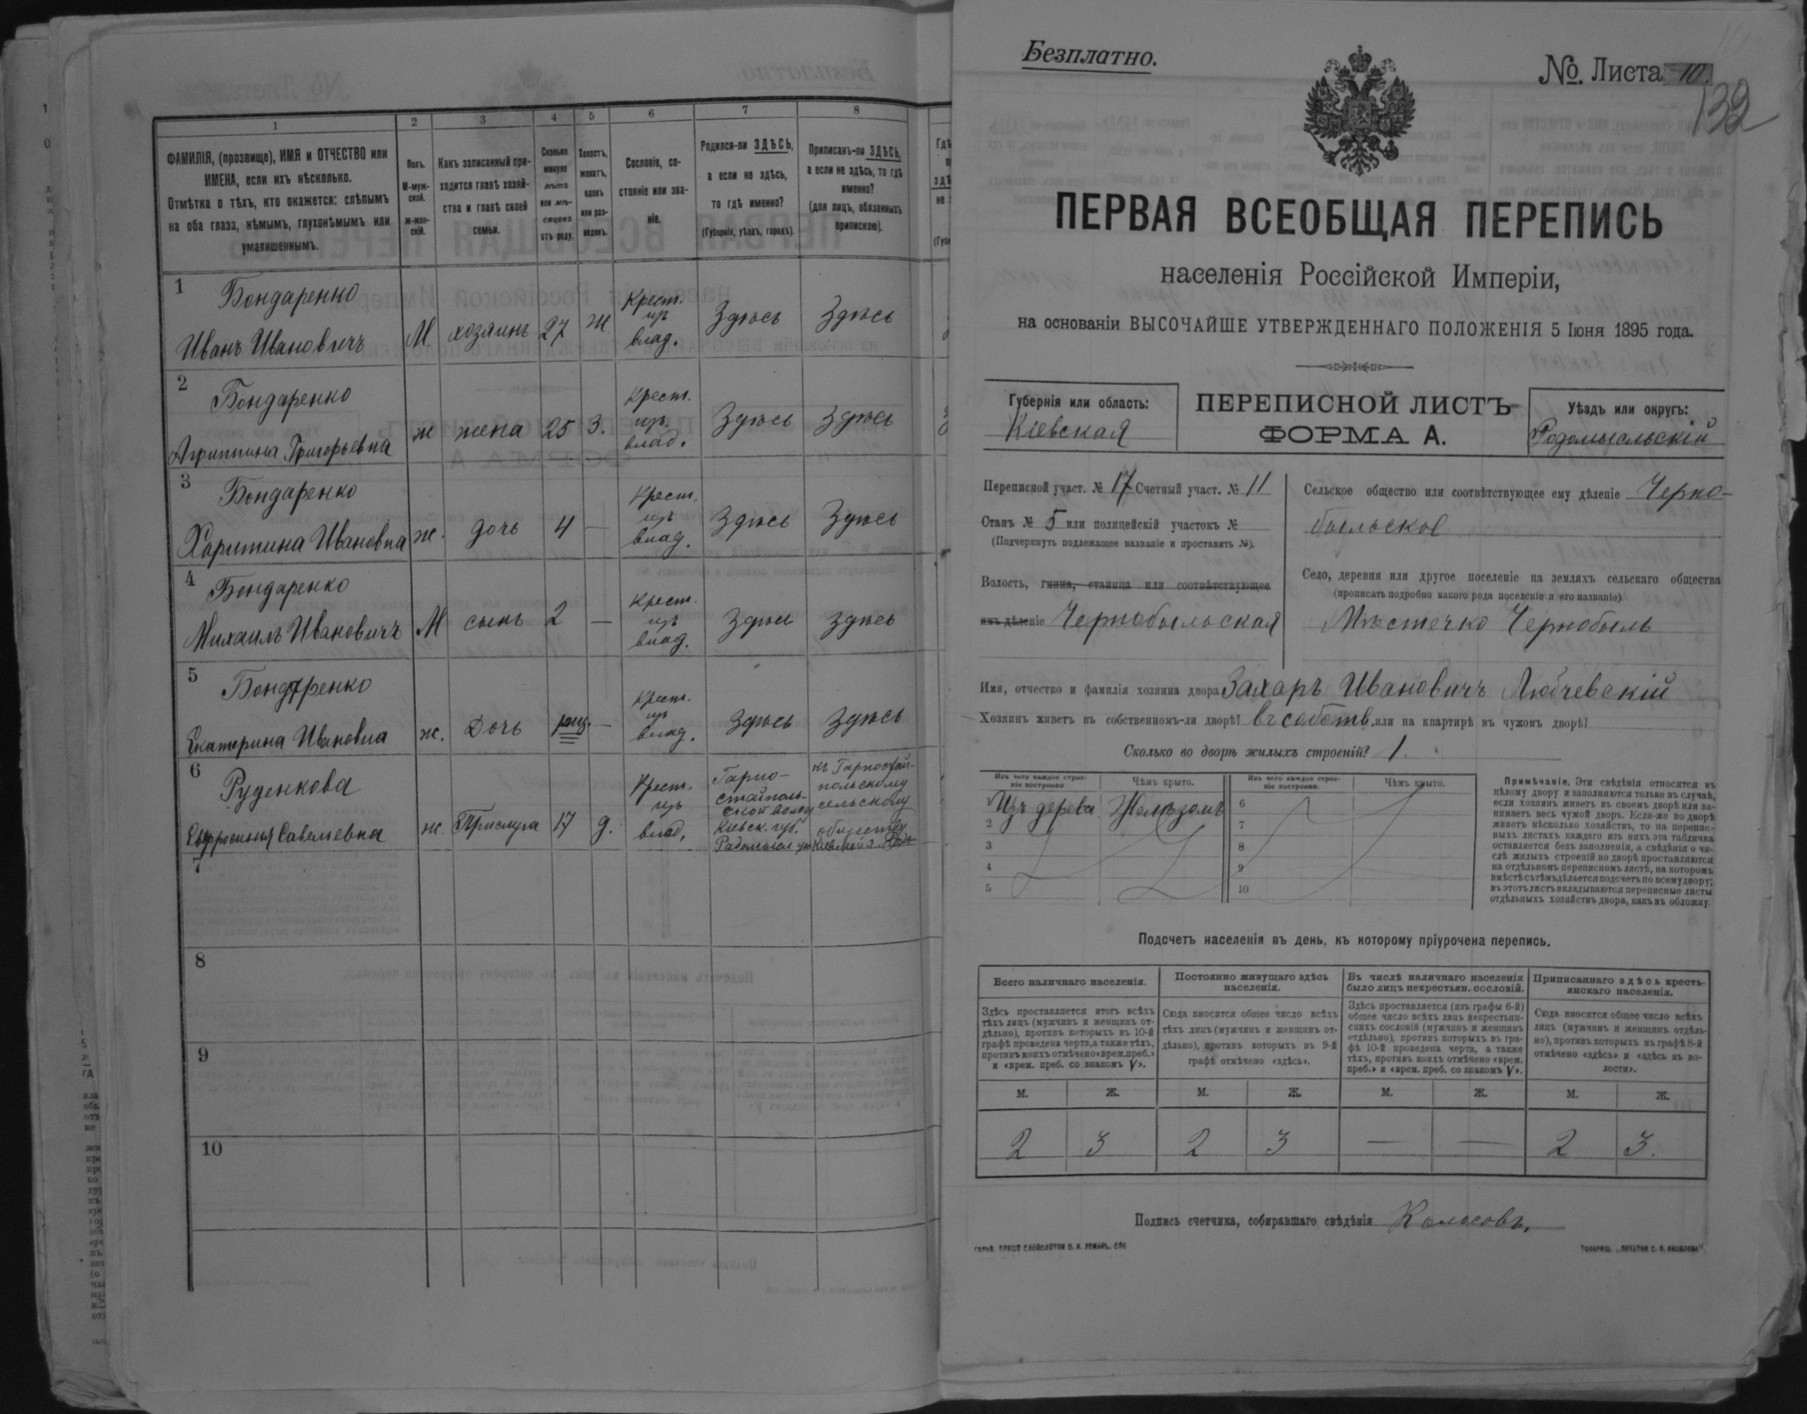 1
2
3
4
5
6
7
8
ФАМИЛІЯ, (прозвище), ИМЯ и ОТЧЕСТВО или
ИМЕНА, если ихъ нѣсколько.
Отмѣтка о тѣхъ, кто окажется: слѣпымъ
на оба глаза, нѣмымъ, глухонѣмымъ или
умалишеннымъ.
Полъ.
М-муж-
ской.
ж-жен-
скій.
Какъ записанный при-
ходится главѣ хозяй-
ства и главѣ своей
семьи.
Сколько
минуло
лѣтъ
или мѣ-
сяцевъ
отъ роду.
Холостъ,
женатъ,
вдовъ
или раз-
веденъ.
Сословіе, со-
стояніе или зва-
ніе.
Родился-ли ЗДѢСЬ,
а если не здѣсь,
то гдѣ именно?
(Губернія, уѣздъ, городъ).
Приписанъ-ли ЗДѢСЬ,
а если не здѣсь, то гдѣ
именно?
(для лицъ, обязанныхъ
припискою).
1 Бондаренко
Иванъ Ивановичъ М хозяинъ 27 ж. Крест. изъ влад. Здѣсь Здѣсь
2 Бондаренко
Агриппина Григорьевна ж жена 25 З. Крест. изъ влад. Здѣсь Здѣсь
3 Бондаренко
Харитина Ивановна ж. дочь 4 — Крест. изъ влад. Здѣсь Здѣсь
4 Бондаренко
Михаилъ Ивановичъ М сынъ 2 — Крест. изъ влад. Здѣсь Здѣсь
5 Бондаренко
Екатерина Ивановна ж. Дочь — Крест. изъ влад. Здѣсь Здѣсь
6 Руденкова
Евфросинія Савельевна ж. Прислуга 17 д. Крест. изъ влад.
Горно-
стайполь-
ской волос.
Кіевск. губ.
къ Горностай-
польскому
сельскому
обществу
7
8
9
10
Безплатно.
№ Листа 10.
132
ПЕРВАЯ ВСЕОБЩАЯ ПЕРЕПИСЬ
населенія Россійской Имперіи,
на основаніи ВЫСОЧАЙШЕ УТВЕРЖДЕННАГО ПОЛОЖЕНІЯ 5 Іюня 1895 года.
Губернія или область:
Кіевская
ПЕРЕПИСНОЙ ЛИСТЪ
ФОРМА А.
Уѣздъ или округъ:
Радомысльскій
Переписной участ. № 17 Счетный участ. № 11
Станъ № 5 или полицейскій участокъ №
(Подчеркнуть подлежащее названіе и проставить №).
Волость, гмина, станица или соотвѣтствующее
имъ дѣленіе Чернобыльская
Сельское общество или соотвѣтствующее ему дѣленіе Черно-
быльское
Село, деревня или другое поселеніе на земляхъ сельскаго общества
(прописать подробно какого рода поселеніе и его названіе)
Мѣстечко Чернобыль
Имя, отчество и фамилія хозяина двора Захаръ Ивановичъ Любчевскій
Хозяинъ живетъ въ собственномъ-ли дворѣ? въ собств. или на квартирѣ въ чужомъ дворѣ?
Сколько во дворѣ жилыхъ строеній? 1.
Изъ чего каждое строе-
ніе построено.
Чѣмъ крыто.
Изъ чего каждое строе-
ніе построено.
Чѣмъ крыто.
1 Изъ дерева Желѣзомъ 6
2 7
3 8
4 9
5 10
Примѣчаніе. Эти свѣдѣнія относятся къ
цѣлому двору и заполняются только въ случаѣ,
если хозяинъ живетъ въ своемъ дворѣ или за-
нимаетъ весь чужой дворъ. Если-же во дворѣ
живетъ нѣсколько хозяйствъ, то на перепис-
ныхъ листахъ каждаго изъ нихъ эта табличка
оставляется безъ заполненія, а свѣдѣнія о чи-
слѣ жилыхъ строеній во дворѣ проставляются
на отдѣльномъ переписномъ листѣ, на которомъ
вмѣстѣ съ тѣмъ дѣлается подсчетъ по всему двору;
въ этотъ листъ вкладываются переписные листы
отдѣльныхъ хозяйствъ двора, какъ въ обложку.
Подсчетъ населенія въ день, къ которому пріурочена перепись.
Всего наличнаго населенія.
Постоянно живущаго здѣсь
населенія.
Въ числѣ наличнаго населенія
было лицъ некрестьян. сословій.
Приписаннаго здѣсь кресть-
янскаго населенія.
Здѣсь проставляется итогъ всѣхъ
тѣхъ лицъ (мужчинъ и женщинъ от-
дѣльно), противъ которыхъ въ 10-й
графѣ проведена черта, а также тѣхъ,
противъ коихъ отмѣчено «врем. преб.»
и «врем. преб. со знакомъ V».
Сюда вносится общее число всѣхъ
тѣхъ лицъ (мужчинъ и женщинъ от-
дѣльно), противъ которыхъ въ 9-й
графѣ отмѣчено «здѣсь».
Здѣсь проставляется (изъ графы 6-й)
общее число всѣхъ лицъ некрестьян-
скихъ сословій (мужчинъ и женщинъ
отдѣльно), противъ которыхъ въ гра-
фѣ 10-й проведена черта, а также
тѣхъ, противъ коихъ отмѣчено «врем.
преб.» и «врем. преб. со знакомъ V».
Сюда вносится общее число всѣхъ
лицъ (мужчинъ и женщинъ отдѣль-
но), противъ которыхъ въ графѣ 8-й
отмѣчено «здѣсь» и «здѣсь въ во-
лости».
М. Ж. М. Ж. М. Ж. М. Ж.
2 3 2 3 — — 2 3.
Подпись счетчика, собиравшаго свѣдѣнія Колосовъ.